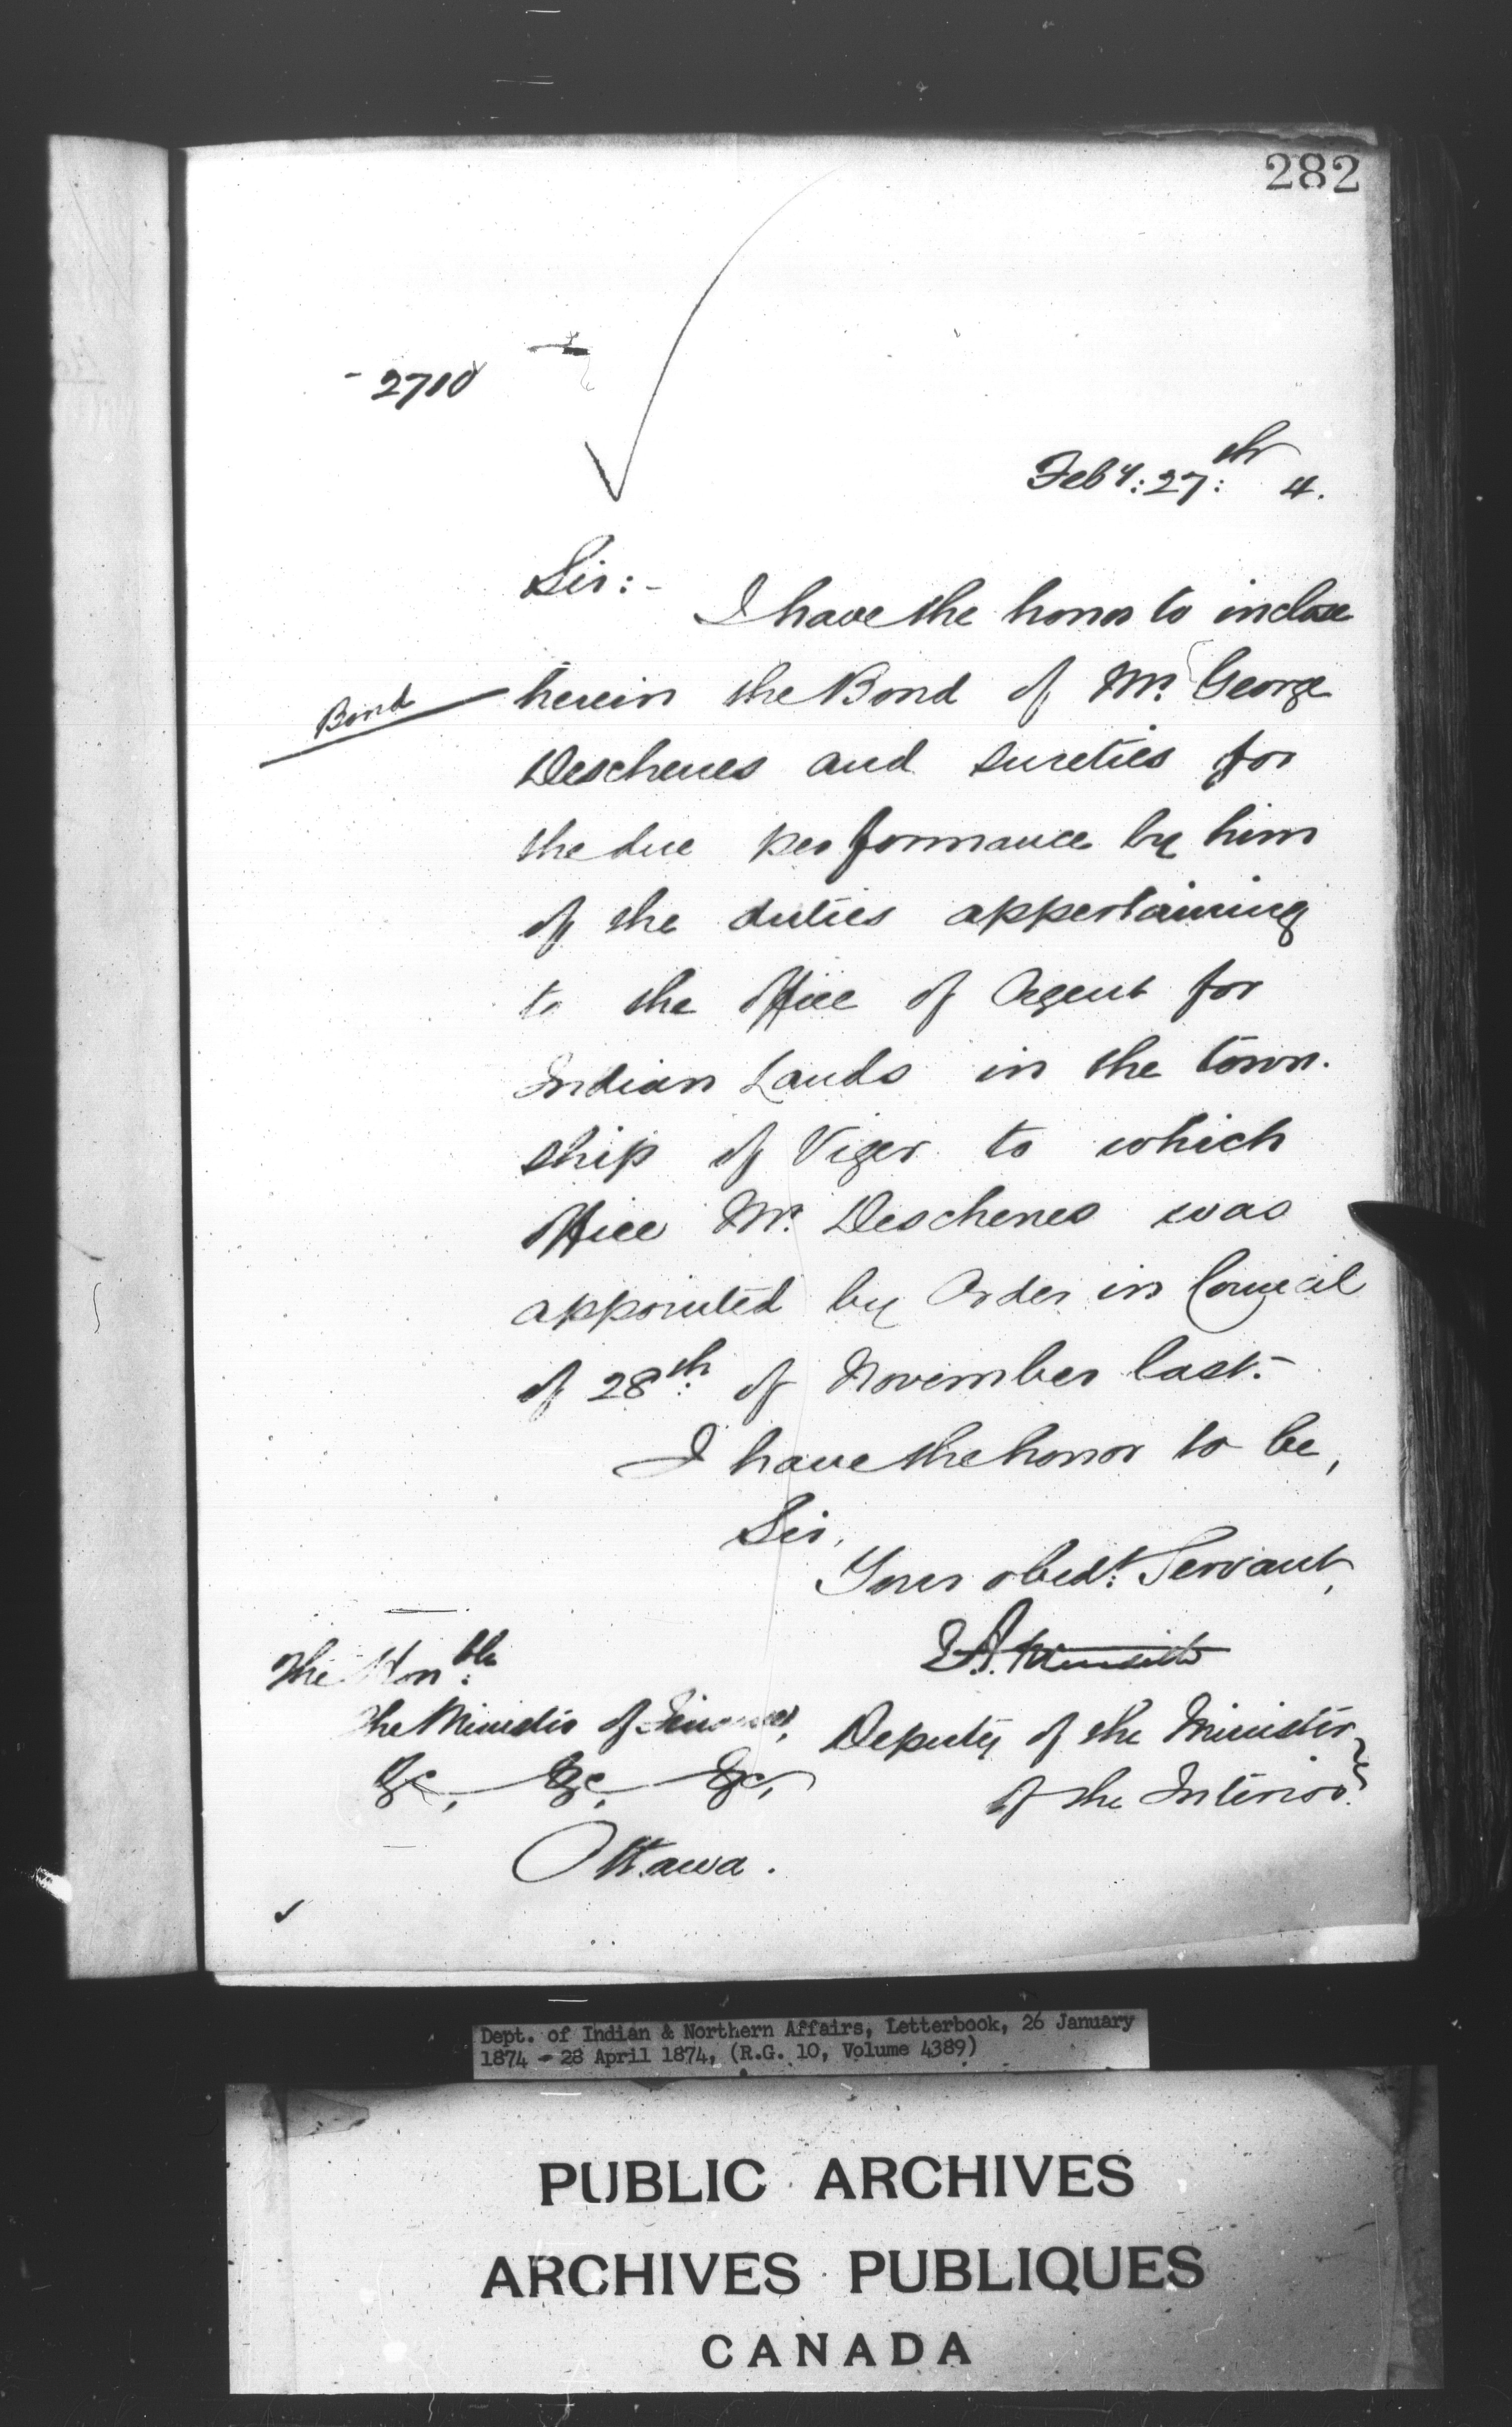 282
- 2710
Feby: 27:th 4.
Sir:-
I have the honor to inclose
Bond
herein the Bond of Mr. George
Deschenes and sureties for
the due performance by him
of the duties appertaining
to the office of Agent for
Indian Lands in the town-
ship of Viger to which
office Mr. Deschenes was
appointed by Order in Council
of 28th of November last.-
I have the honor to be,
Sir,
Your obedt: Servant,
The Honble:
The Minister of Finance,
Deputy of the Minister
&c, &c, &c,
of the Interior.
Ottawa.
Dept. of Indian & Northern Affairs, Letterbook, 26 January
1874 - 28 April 1874, (R.G. 10, Volume 4389)
PUBLIC ARCHIVES
ARCHIVES PUBLIQUES
CANADA